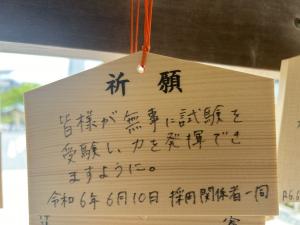 祈願
皆様が無事に試験を
受験し、力を発揮でき
ますように。
令和6年6月10日 採用関係者一同